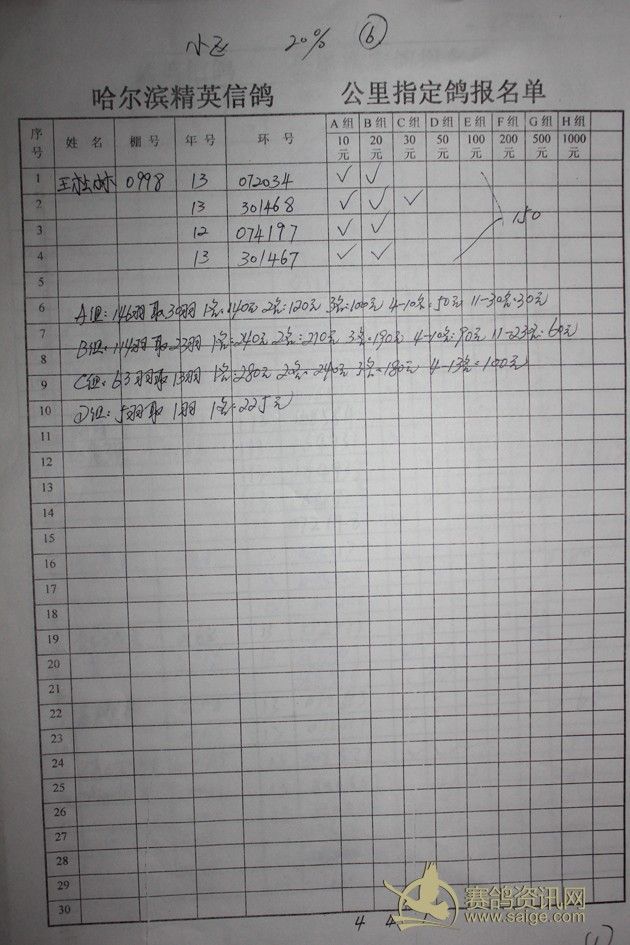 小飞 20% ⑥
哈尔滨精英信鸽 公里指定鸽报名单
序号 姓名 棚号 年号 环号 A组10元 B组20元 C组30元 D组50元 E组100元 F组200元 G组500元 H组1000元
1 王杜林 0998 13 072034 ✓ ✓
2 13 301468 ✓ ✓ ✓ 150
3 12 074197 ✓ ✓
4 13 301467 ✓ ✓
5
6 A组:146羽取30羽 1名:140元 2名:120元 3名:100元 4-10名:50元 11-30名:30元
7 B组:114羽取23羽 1名:240元 2名:210元 3名:190元 4-10名:90元 11-23名:60元
8
9 C组:63羽取13羽 1名:280元 2名:240元 3名:180元 4-13名:100元
10 D组:5羽取1羽 1名:225元
11
12
13
14
15
16
17
18
19
20
21
22
23
24
25
26
27
28
29
30
4 4 1
赛鸽资讯网
www.saige.com